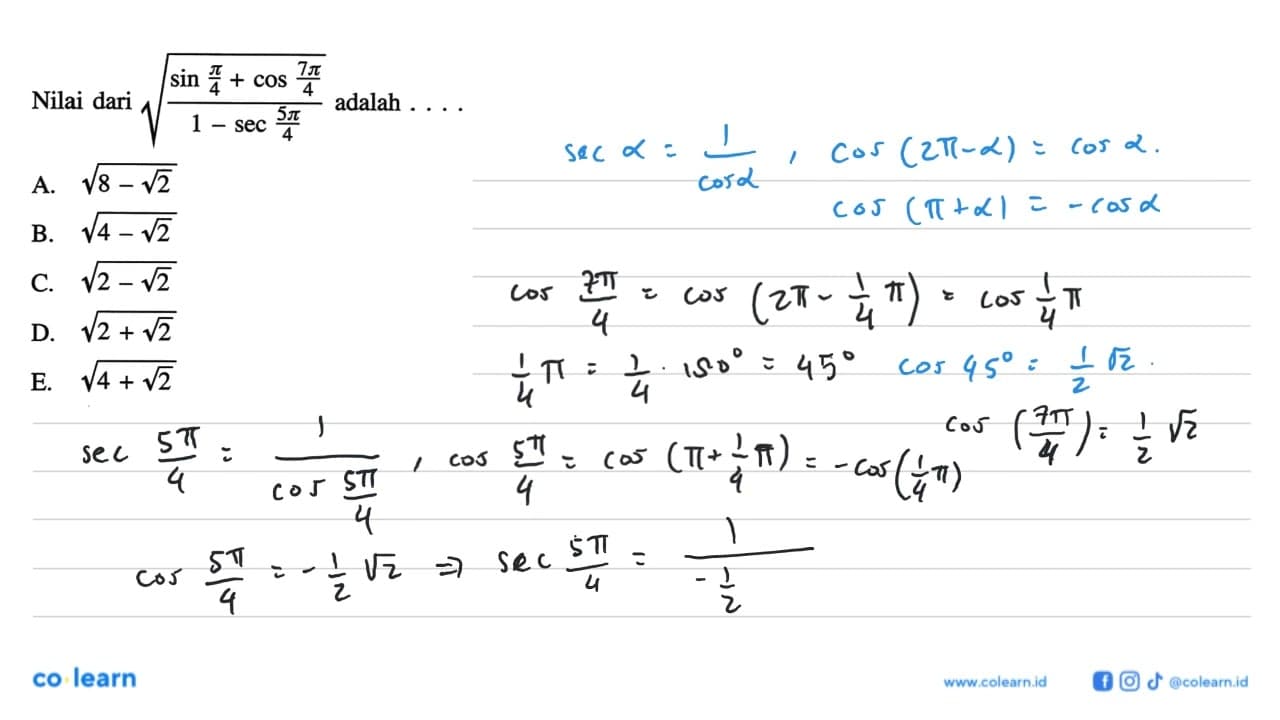 Nilai dari √((sin π/4 + cos 7π/4)/(1 − sec 5π/4)) adalah . . . .
A. √(8 − √2)
B. √(4 − √2)
C. √(2 − √2)
D. √(2 + √2)
E. √(4 + √2)
sec α = 1/cos α , cos (2π−α) = cos α.
cos (π+α) = −cos α
cos 7π/4 = cos (2π − 1/4 π) = cos 1/4 π
1/4 π = 1/4 . 180° = 45° cos 45° = 1/2 √2 .
cos (7π/4) = 1/2 √2
sec 5π/4 = 1/(cos 5π/4) , cos 5π/4 = cos (π + 1/4 π) = −cos (1/4 π)
cos 5π/4 = − 1/2 √2 ⇒ sec 5π/4 = 1/(− 1/2)
co learn
www.colearn.id @colearn.id